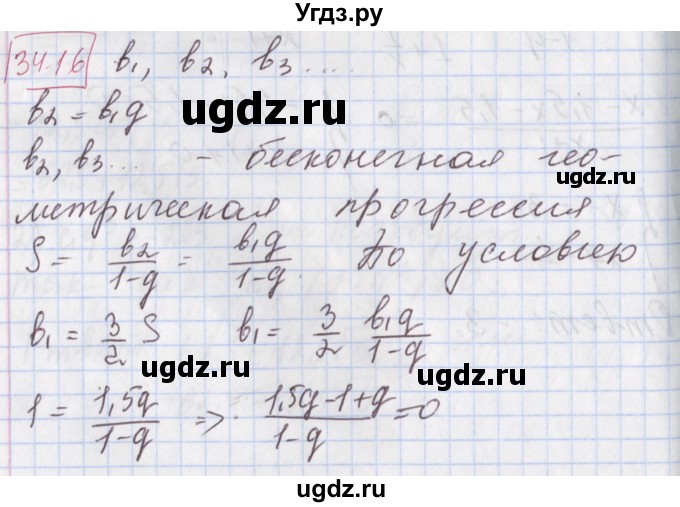 Угдз.ру
34.16 b₁, b₂, b₃ ....
b₂ = b₁q
ugdz.ru
ugdz.ru
b₂, b₃... – бесконечная гео-
метрическая прогрессия
S = b₂/(1-q) = b₁q/(1-q). По условию
ugdz.ru
b₁ = 3/2 S b₁ = 3/2 b₁q/(1-q)
ugdz.ru
ugdz.ru
1 = 1,5q/(1-q) => (1,5q-1+q)/(1-q) = 0
ugdz.ru
ugdz.ru